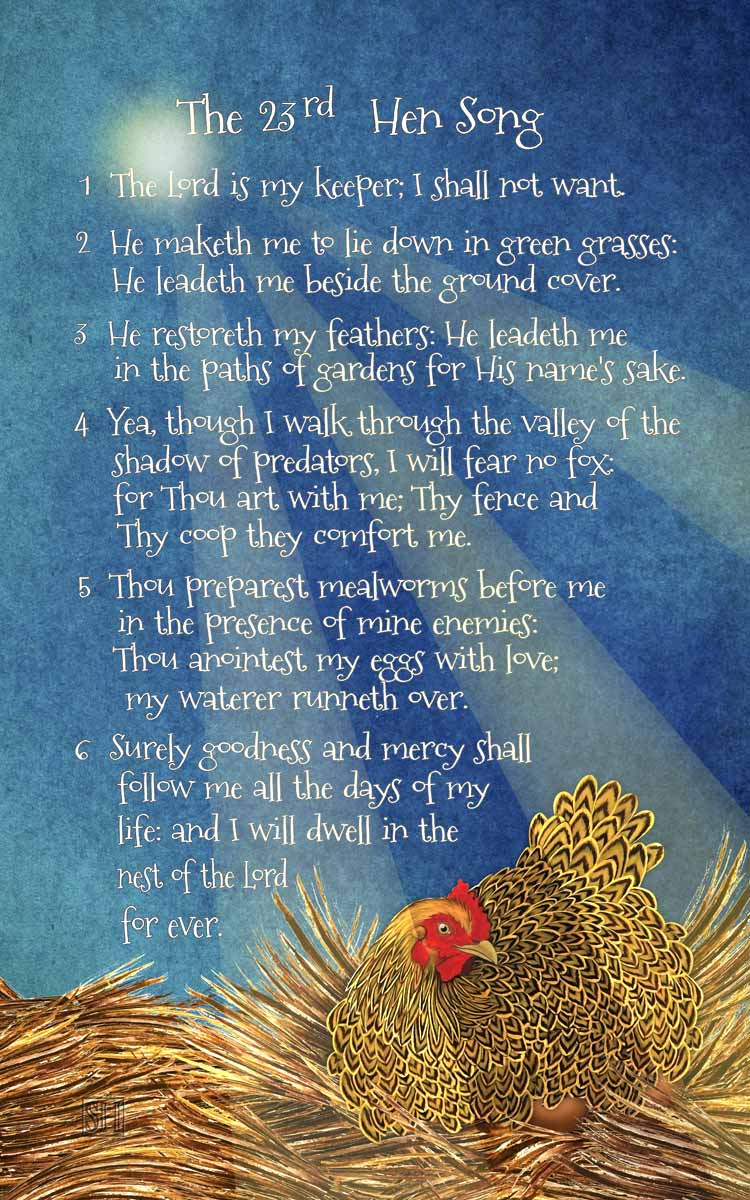 The 23rd Hen Song
1 The Lord is my keeper; I shall not want.
2 He maketh me to lie down in green grasses:
He leadeth me beside the ground cover.
3 He restoreth my feathers: He leadeth me
in the paths of gardens for His name's sake.
4 Yea, though I walk through the valley of the
shadow of predators, I will fear no fox:
for Thou art with me; Thy fence and
Thy coop they comfort me.
5 Thou preparest mealworms before me
in the presence of mine enemies:
Thou anointest my eggs with love;
my waterer runneth over.
6 Surely goodness and mercy shall
follow me all the days of my
life: and I will dwell in the
nest of the Lord
for ever.